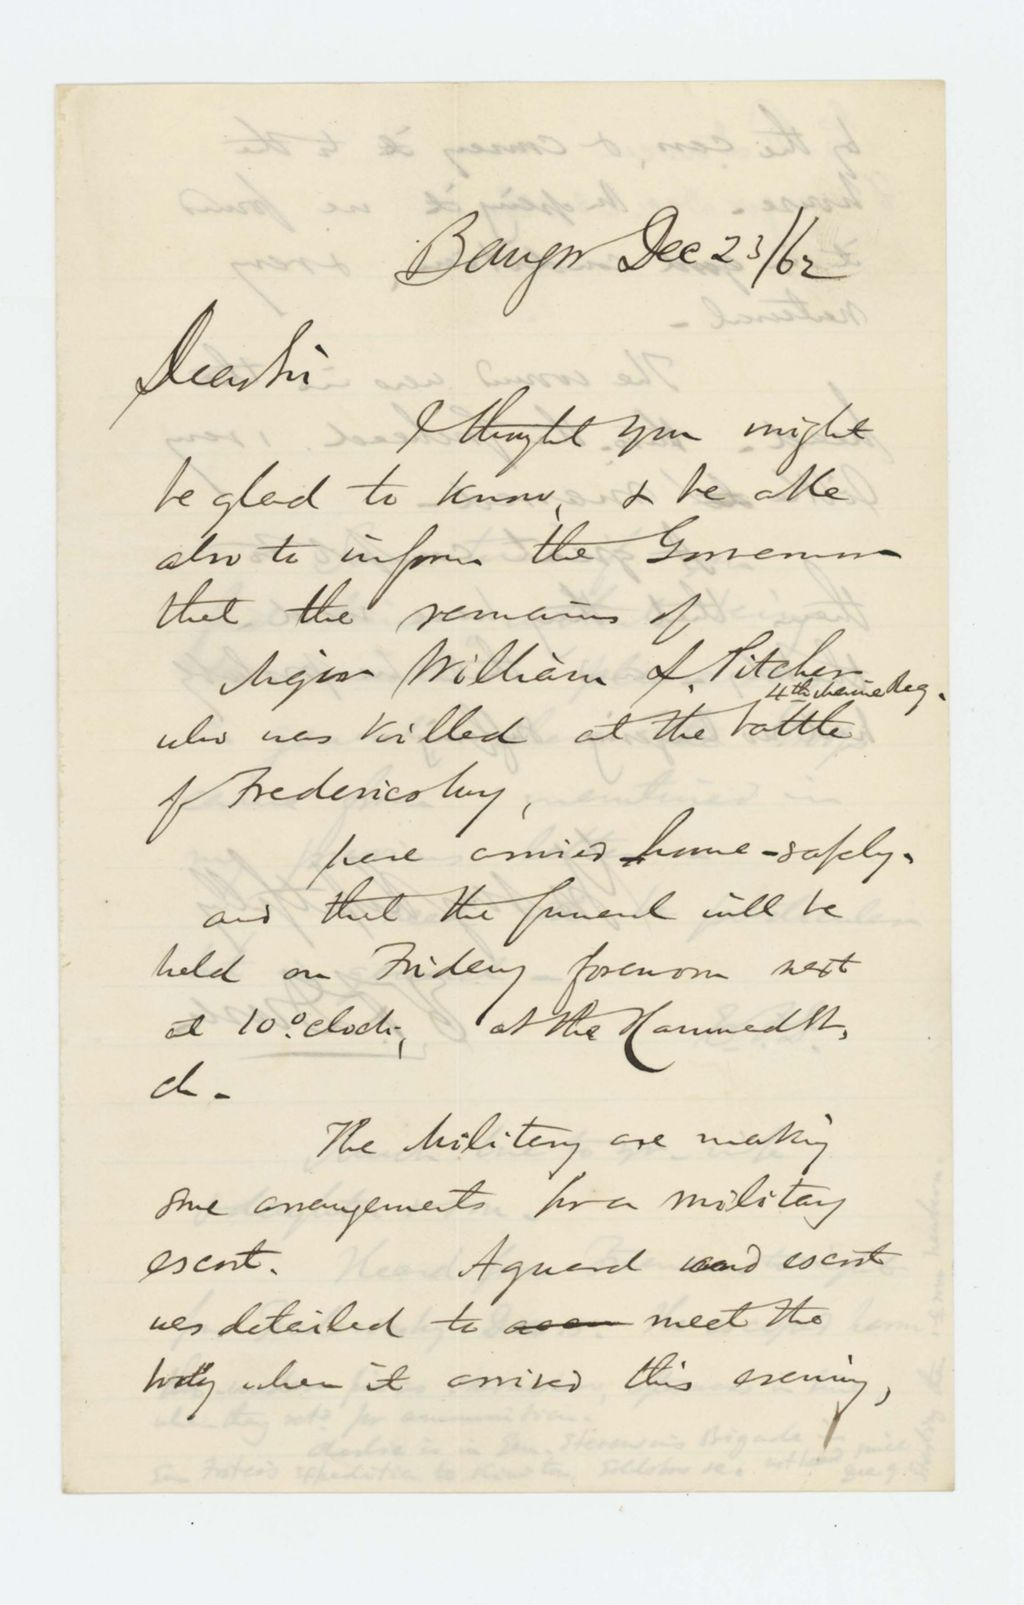 Bangor Dec 23/62
Dear Sir
I thought you might
be glad to know, & be able
also to inform the Governor
that the remains of
Major William L. Pitcher
4th Maine Reg.
who was killed at the battle
of Fredericsburg,
have arrived home safely.
and that the funeral will be
held on Friday forenoon next
at 10 o'clock, at the Hammond St.
ch.
The Military are making
some arrangements for a military
escort. A guard and escort
was detailed to meet the
body when it arrived this evening,